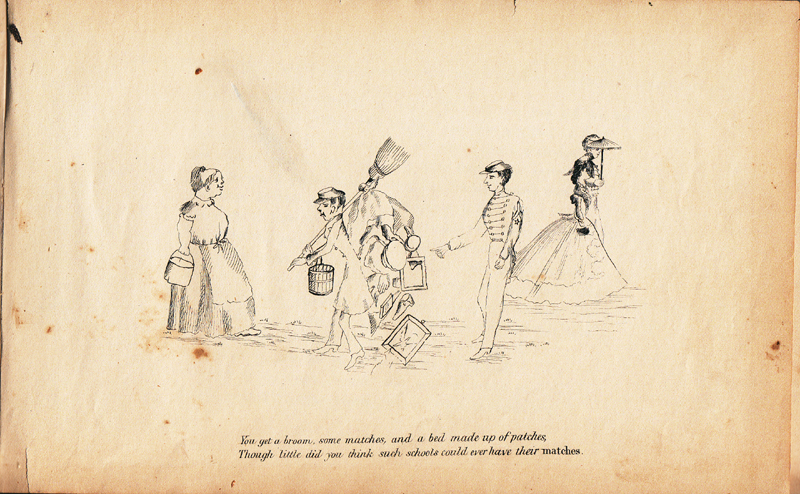 You get a broom, some matches, and a bed made up of patches,
Though little did you think such schools could ever have their matches.